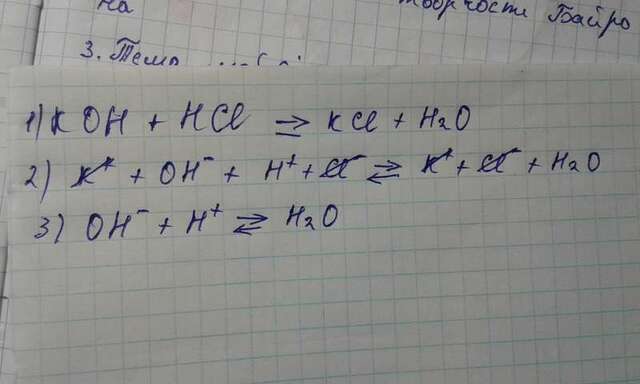 на творчости Байро
3. Тема
1) KOH + HCl ⇄ KCl + H₂O
2) K⁺ + OH⁻ + H⁺ + Cl⁻ ⇄ K⁺ + Cl⁻ + H₂O
3) OH⁻ + H⁺ ⇄ H₂O